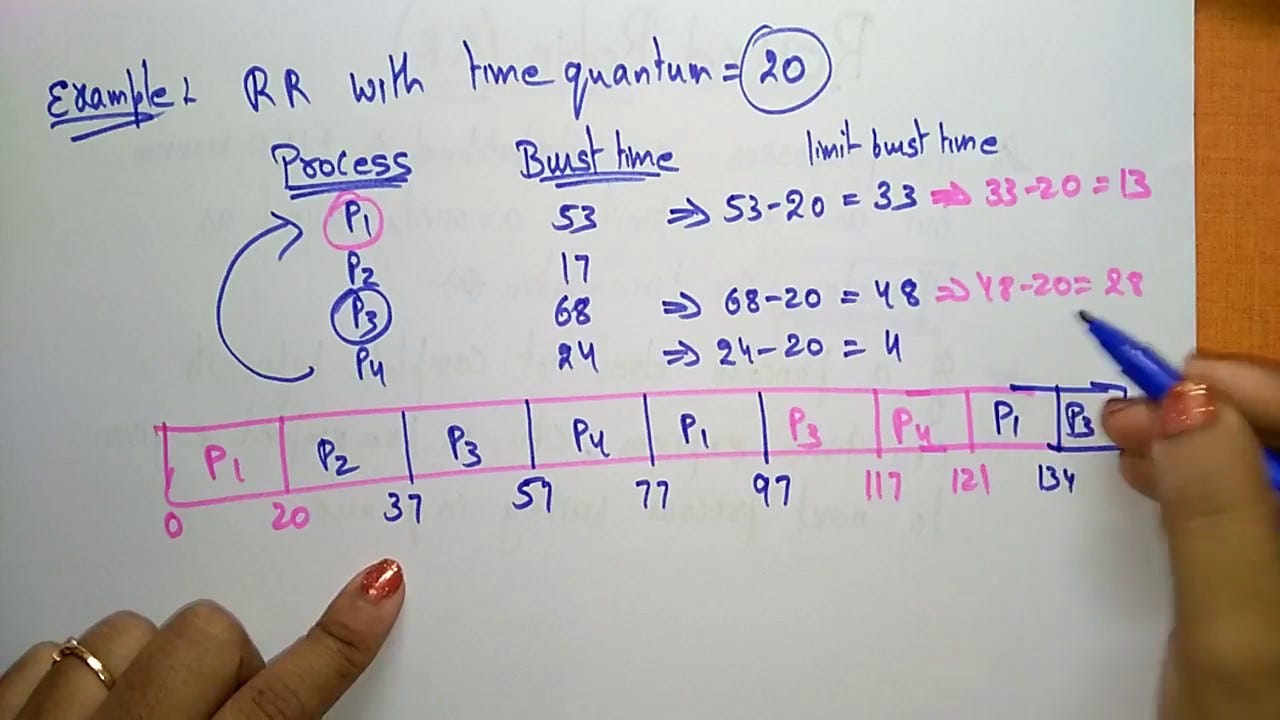 Example: RR with time quantum = 20
Process Burst time limit burst time
P1 53 ⇒ 53-20 = 33 ⇒ 33-20 = 13
P2 17
P3 68 ⇒ 68-20 = 48 ⇒ 48-20 = 28
P4 24 ⇒ 24-20 = 4
P1 P2 P3 P4 P1 P3 P4 P1 P3
0 20 37 57 77 97 117 121 134